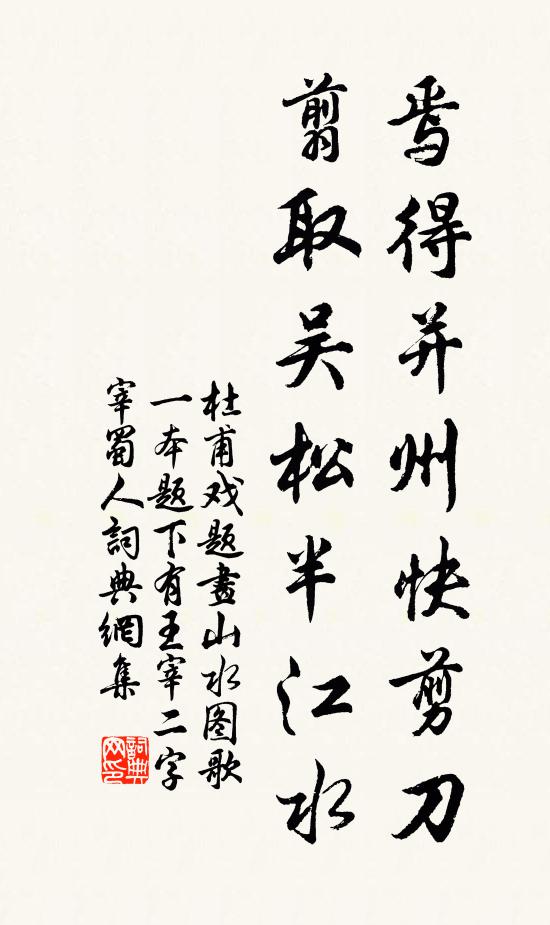 焉得并州快剪刀
翦取吴松半江水
杜甫戏题畫山水图歌
一本题下有王宰二字
宰蜀人詞典網集
詞典
网印